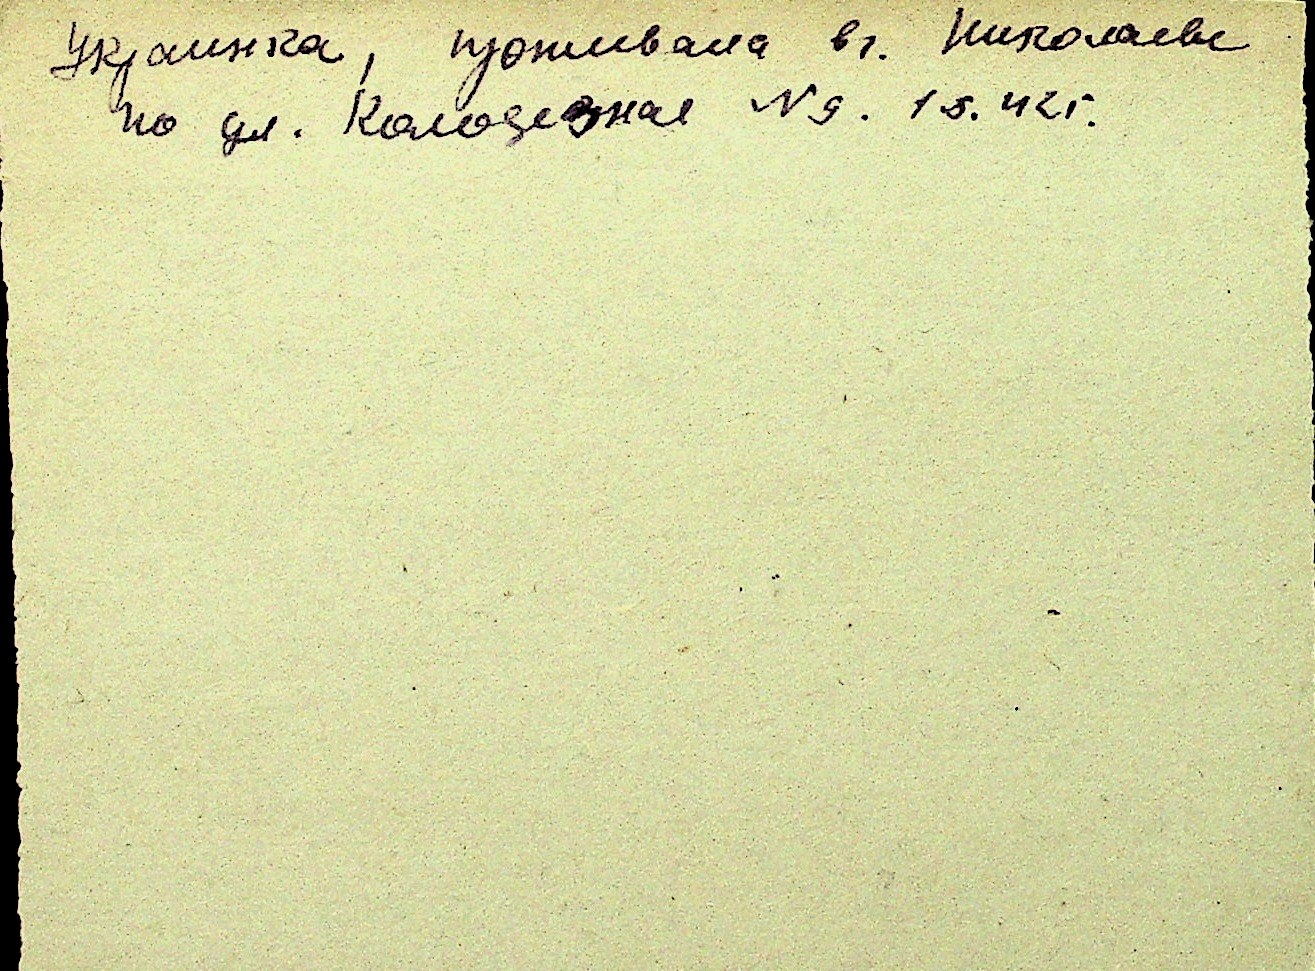 Украинка, проживала в г. Николаеве
по ул. Колодезная N 9. 15.42г.